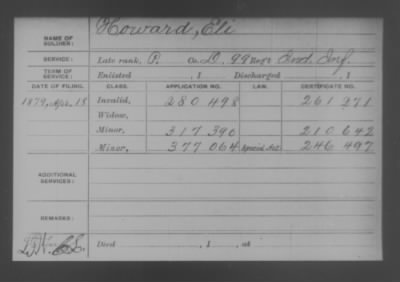 NAME OF SOLDIER: Howard, Eli
SERVICE: Late rank, P. Co. D, 99 Reg't Ind. Inf.
TERM OF SERVICE: Enlisted , 1 Discharged , 1
DATE OF FILING. CLASS. APPLICATION NO. LAW. CERTIFICATE NO.
1879, Apr. 18 Invalid, 280 498 261 271
Widow,
Minor, 317 390 210 642
Minor, 377 064 Special Act. 246 497
ADDITIONAL SERVICES:
REMARKS:
Died , 1 , at